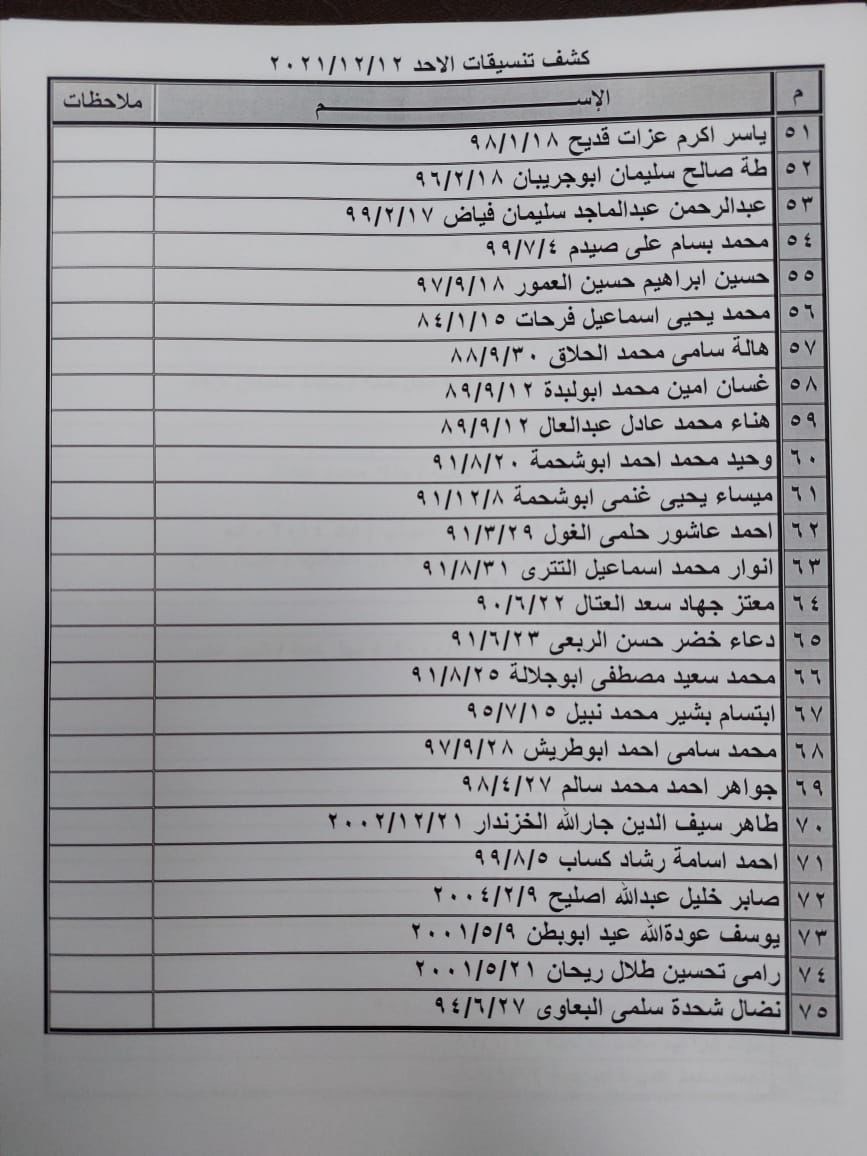 كشف تنسيقات الاحد ٢٠٢١/١٢/١٢
م الإســـــم ملاحظات
٥١ ياسر اكرم عزات قديح ٩٨/١/١٨
٥٢ طة صالح سليمان ابوجريبان ٩٦/٢/١٨
٥٣ عبدالرحمن عبدالماجد سليمان فياض ٩٩/٢/١٧
٥٤ محمد بسام على صيدم ٩٩/٧/٤
٥٥ حسين ابراهيم حسين العمور ٩٧/٩/١٨
٥٦ محمد يحيى اسماعيل فرحات ٨٤/١/١٥
٥٧ هالة سامى محمد الحلاق ٨٨/٩/٣٠
٥٨ غسان امين محمد ابولبدة ٨٩/٩/١٢
٥٩ هناء محمد عادل عبدالعال ٨٩/٩/١٢
٦٠ وحيد محمد احمد ابوشحمة ٩١/٨/٢٠
٦١ ميساء يحيى غنمى ابوشحمة ٩١/١٢/٨
٦٢ احمد عاشور حلمى الغول ٩١/٣/٢٩
٦٣ انوار محمد اسماعيل التترى ٩١/٨/٣١
٦٤ معتز جهاد سعد العتال ٩٠/٦/٢٢
٦٥ دعاء خضر حسن الربعى ٩١/٦/٢٣
٦٦ محمد سعيد مصطفى ابوجلالة ٩١/٨/٢٥
٦٧ ابتسام بشير محمد نبيل ٩٥/٧/١٥
٦٨ محمد سامى احمد ابوطريش ٩٧/٩/٢٨
٦٩ جواهر احمد محمد سالم ٩٨/٤/٢٧
٧٠ طاهر سيف الدين جارالله الخزندار ٢٠٠٢/١٢/٢١
٧١ احمد اسامة رشاد كساب ٩٩/٨/٥
٧٢ صابر خليل عبدالله اصليح ٢٠٠٤/٢/٩
٧٣ يوسف عودةالله عيد ابوبطن ٢٠٠١/٥/٩
٧٤ رامى تحسين طلال ريحان ٢٠٠١/٥/٢١
٧٥ نضال شحدة سلمى البعاوى ٩٤/٦/٢٧